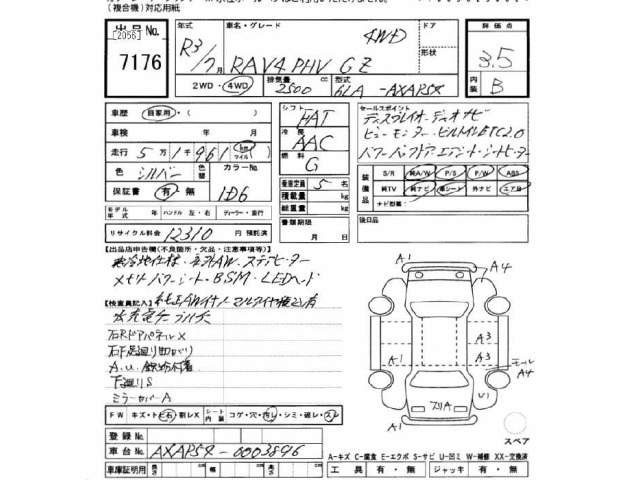 (複合機)対応用紙
出品No.
[2056]
7176
年式 車名・グレード ドア 評価点
R3/7月 RAV4 PHV GZ 4WD 形状 3.5
2WD・4WD 排気量 2500 cc 型式 6LA-AXAP54 内装 B
車歴 自家用・( )
車検 年 月
走行 5万1千961 km マイル
色 シルバー 色替 カラーNo.
保証書 有・無 1D6
シフト FAT
冷房 AAC
燃料 G
乗車定員 5名
積載量 kg
総重量 kg
書類期限
月 日
セールスポイント
ディスプレイオーディオ ナビ
ビューモーター・ビルMLETC2.0
パワーバックドア エアシート・シートヒーター
装備品 S/R 純A/W P/S P/W ABS
純TV 純ナビ 革シート 外ナビ エアB
ナビ型番:
モデル年式 年 ハンドル 左・右 ディーラー・並行
後日品
リサイクル料金 12310 円 預託済
【出品店申告欄(不良箇所・欠品・注意事項等)】
寒冷地仕様・ネットAW・ステアヒーター
メモリパワーシート・BSM・LEDヘッド
【検査員記入】
石Rドアパネル X
A.U.鉄粉付着
下廻りS
ミラーカバーA
FW キズ・トビ石・割レX シート内装 コゲ・穴・汚レ・シミ・破レ・スレ
登録No.
車台No. AXAP54-0003896
車庫証明用 長さ cm 幅 cm 高さ cm
A1
A4
A1
A3
A3
モール
A4
フリA
U1
A1
スペア
A-キズ C-腐食 E-エクボ S-サビ U-凹ミ W-補修 XX-交換済
工具 有・無 ジャッキ 有・無